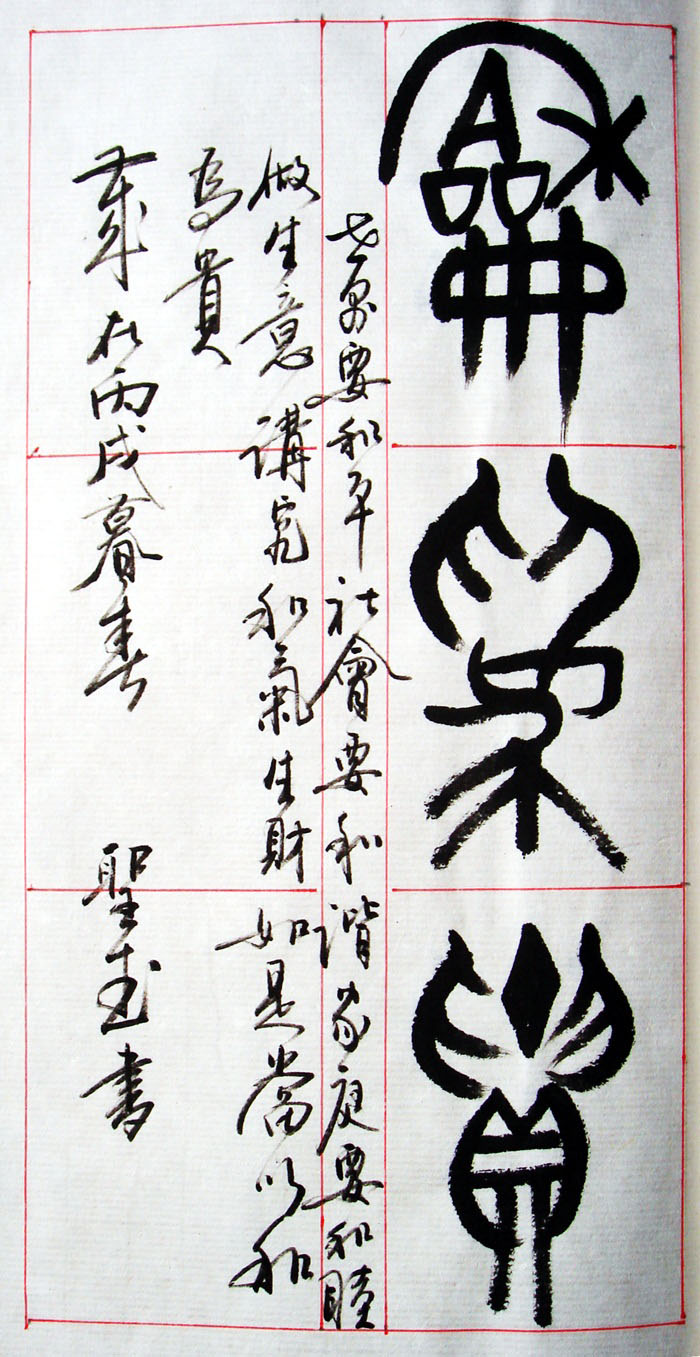 龢為貴
世界要和平社會要和諧家庭要和睦
做生意講究和氣生財如是當以和
為貴
歲在丙戌暮春 聖武書